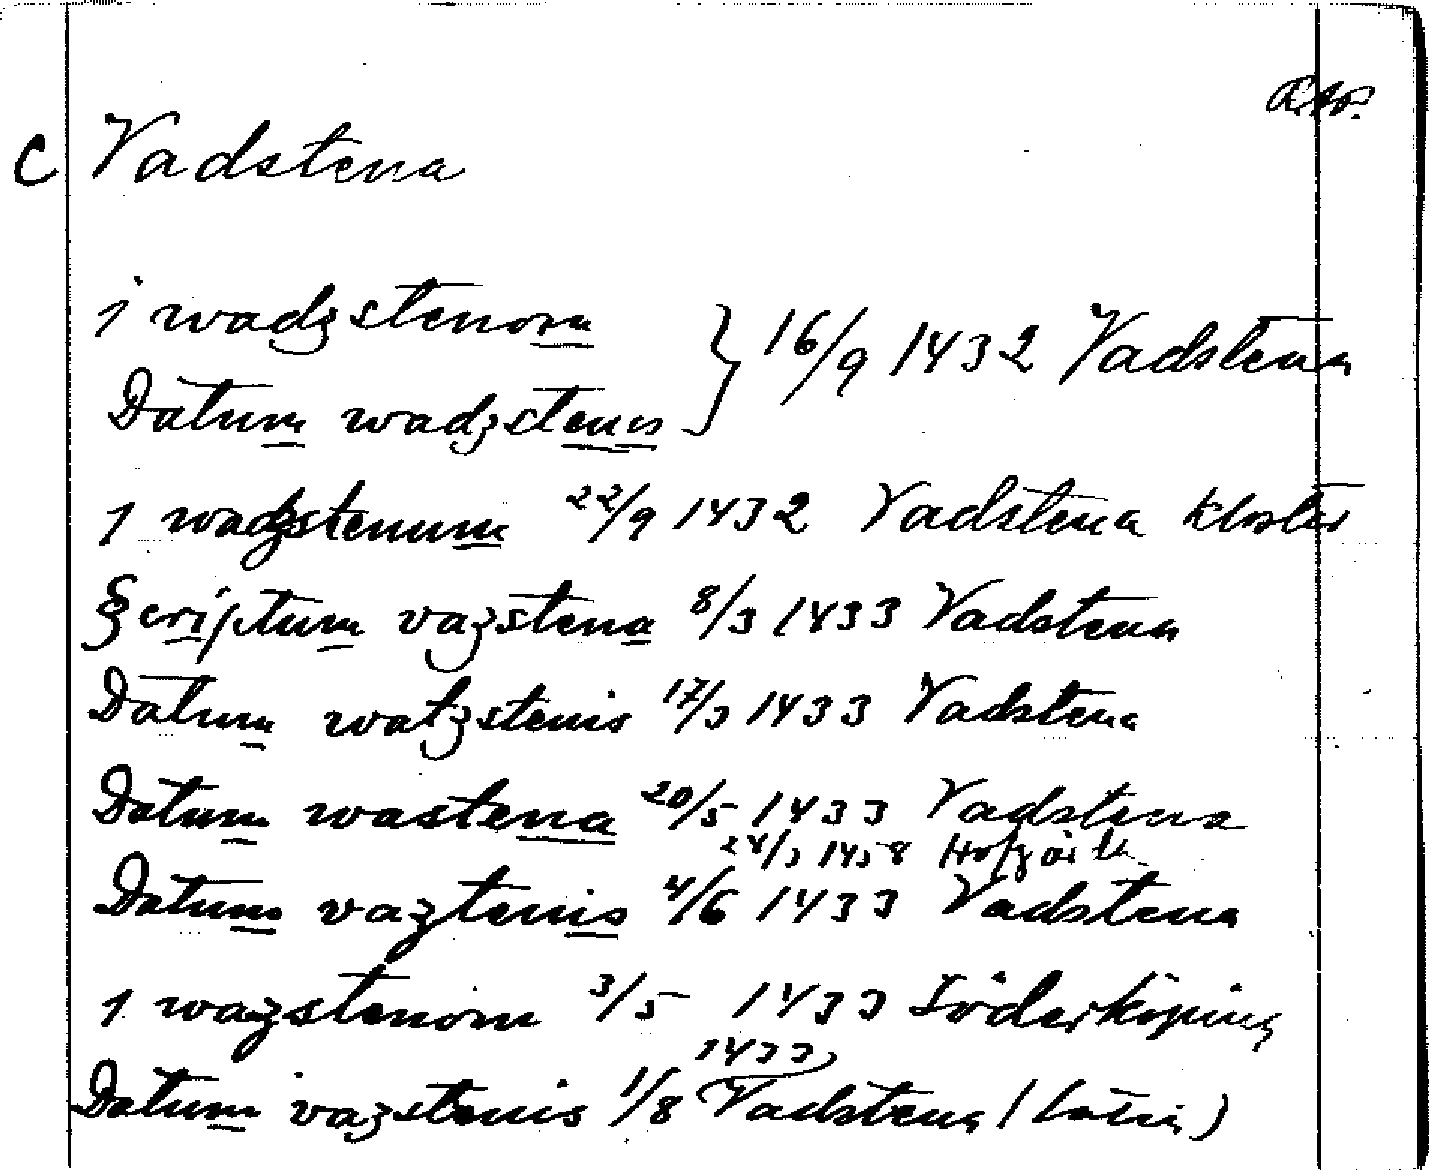 C Vadstena
i wadzstenom } 16/9 1432 Vadstena
Datum wadzstenis
i wadzstenum 22/9 1432 Vadstena kloster
Scriptum vazstena 8/3 1433 Vadstena
Datum watzstenis 17/3 1433 Vadstena
Datum wastena 20/5 1433 Vadstena
Datum vaztenis 4/6 1433 Vadstena
i wazstenom 3/5 1433 Söderköping
Datum vazstenis 1/8 1433 Vadstena (latin)